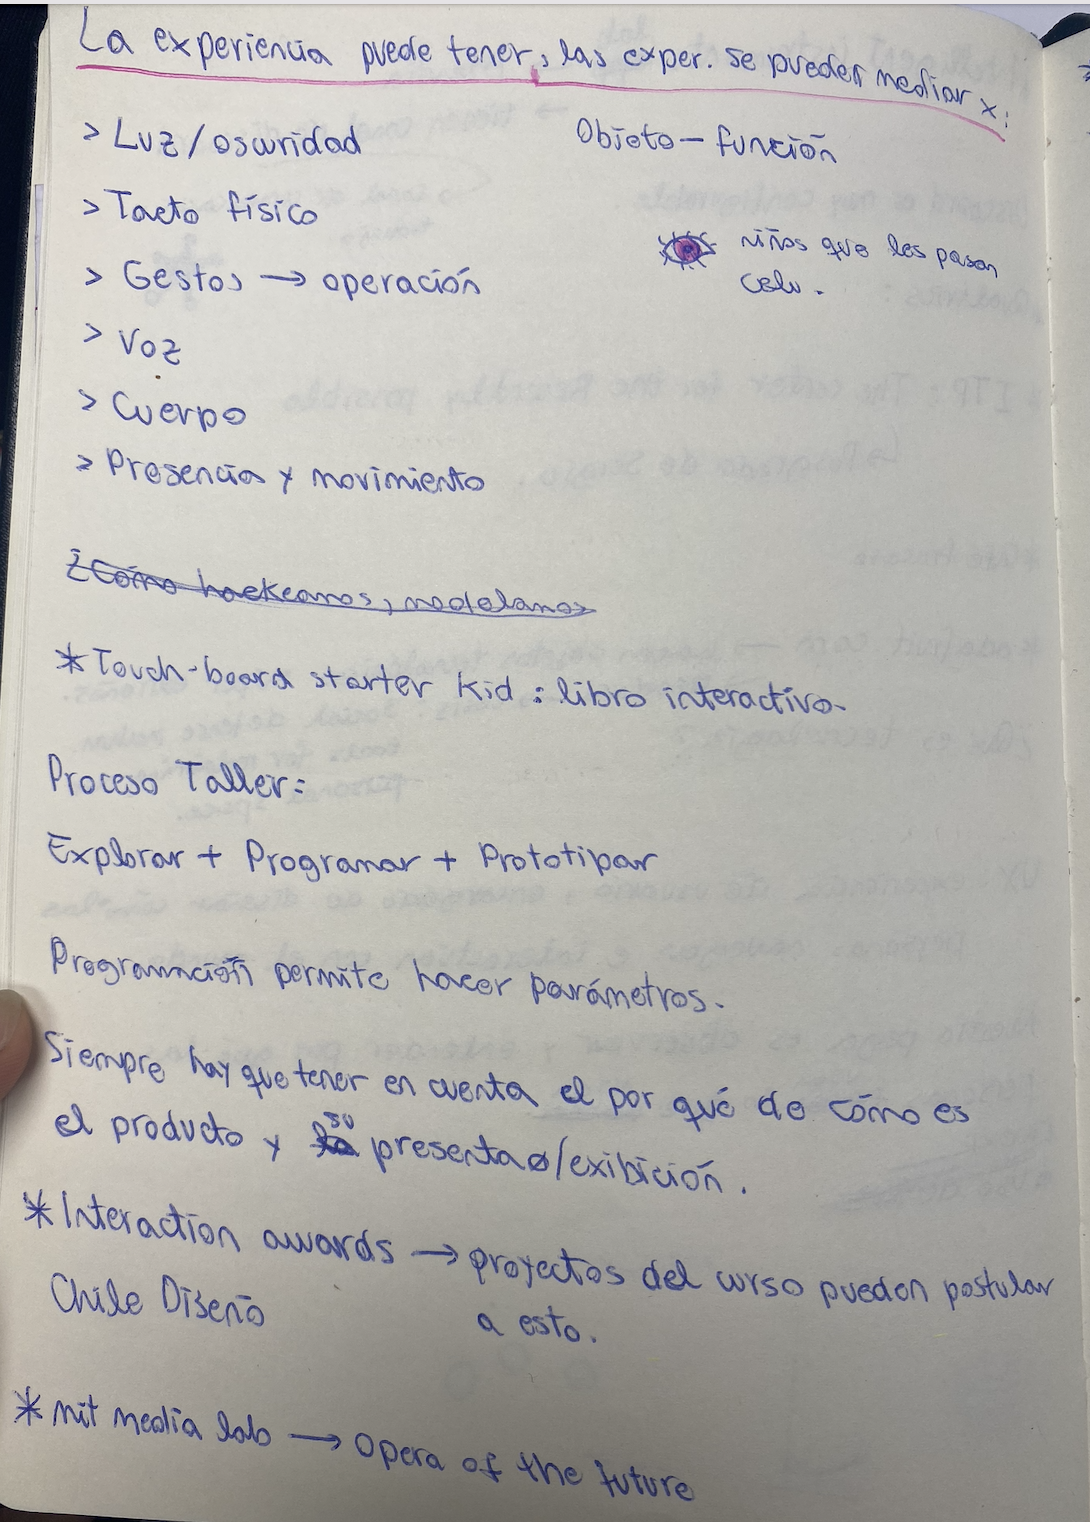 La experiencia puede tener, las exper. se pueden mediar x:
> Luz/oscuridad
Objeto – función
> Tacto físico
niños que les pasan
celu.
> Gestos → operación
> Voz
> Cuerpo
> Presencia y movimiento
¿Cómo hackeamos, modelamos
* Touch-board starter kid : libro interactivo-
Proceso Taller:
Explorar + Programar + Prototipar
Programación permite hacer parámetros.
Siempre hay que tener en cuenta el por qué de cómo es
el producto y su presentaø/exibición.
* Interaction awards → proyectos del curso pueden postular
Chile Diseño a esto.
* mit media lab → opera of the future